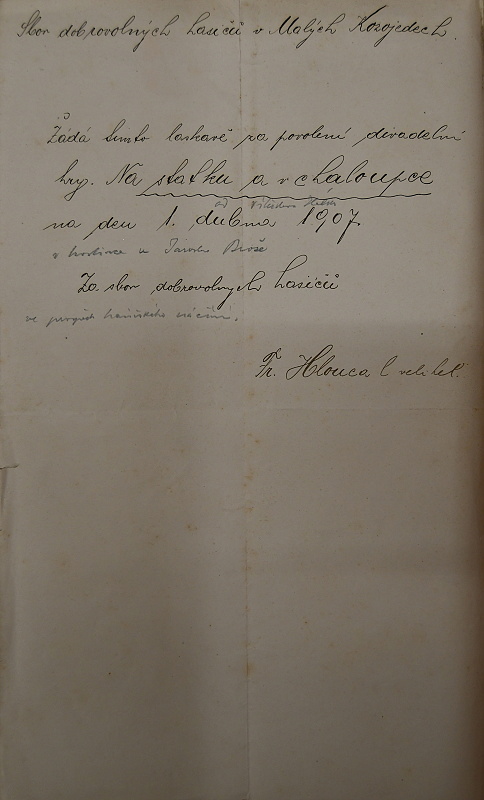 Sbor dobrovolných hasičů v Malých Kozojedech.
Žádá tímto laskavě za povolení divadelní
hry. Na statku a v chaloupce
od Vítězslava Hálka
na den 1. dubna 1907
v hostince u Jaroše
Za sbor dobrovolných hasičů
ve prospěch hasičského náčiní.
Fr. Hlouca velitel.